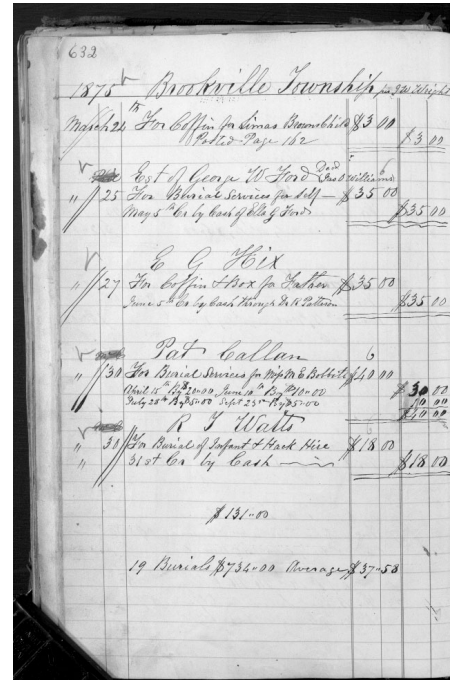 632
1875 Brookville Township per J W Wright
March 24th For Coffin for Simas Browns Child $3 00
Posted Page 162 $3 00
Est of George W Ford Dad Jas D Williams
" 25 For Burial Services for Self — $35 00
May 5th Cr by Cash of Ella G Ford $35 00
E G Hix
" 27 For Coffin & Box for Father $35 00
June 5th Cr by Cash through Dr R Patterson $35 00
Pat Callan 6
" 30 For Burial Services for $40 00
April 15th By $20.00 June 10th By $10.00 $30 00
July 28th By $5.00 Sept 23rd By $5.00 10 00
$40 00
R T Watts 6
" 30 For Burial of Infant & Hack Hire $18 00
" 31st Cr by Cash $18 00
$131.00
19 Burials $734.00 Average $37.58